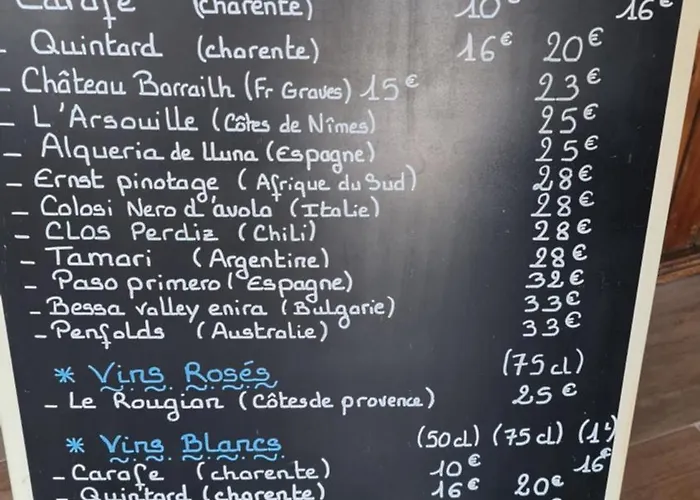 Carafe (charente) 10€ 16€
- Quintard (charente) 16€ 20€
- Château Barrailh (Fr Graves) 15€ 23€
- L'Arsouille (Côtes de Nîmes) 25€
- Alqueria de lluna (Espagne) 25€
- Ernst pinotage (Afrique du Sud) 28€
- Colosi Nero d'avola (Italie) 28€
- Clos Perdiz (Chili) 28€
- Tamari (Argentine) 28€
- Paso primero (Espagne) 32€
- Bessa valley enira (Bulgarie) 33€
- Penfolds (Australie) 33€
* Vins Rosés (75cl)
- Le Rougian (Côtes de provence) 25€
* Vins Blancs (50cl) (75cl) (1L)
- Carafe (charente) 10€ 16€
- Quintard (charente) 16€ 20€